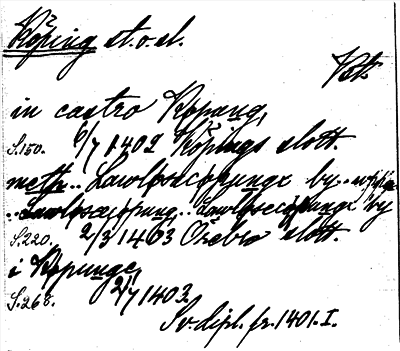 Köping st. o. sl.
Vstm.
in castro Kopung,
S. 150. 6/7 1402 Köpings slott.
meth .. Lawlosæcopungx by ..
.. Lawlosæcopung .. Lawlosecopungx by
S. 220. 2/3 1403 Örebro slott.
i Kopunge,
S. 268. 2/7 1403.
Sv. dipl. fr. 1401. I.